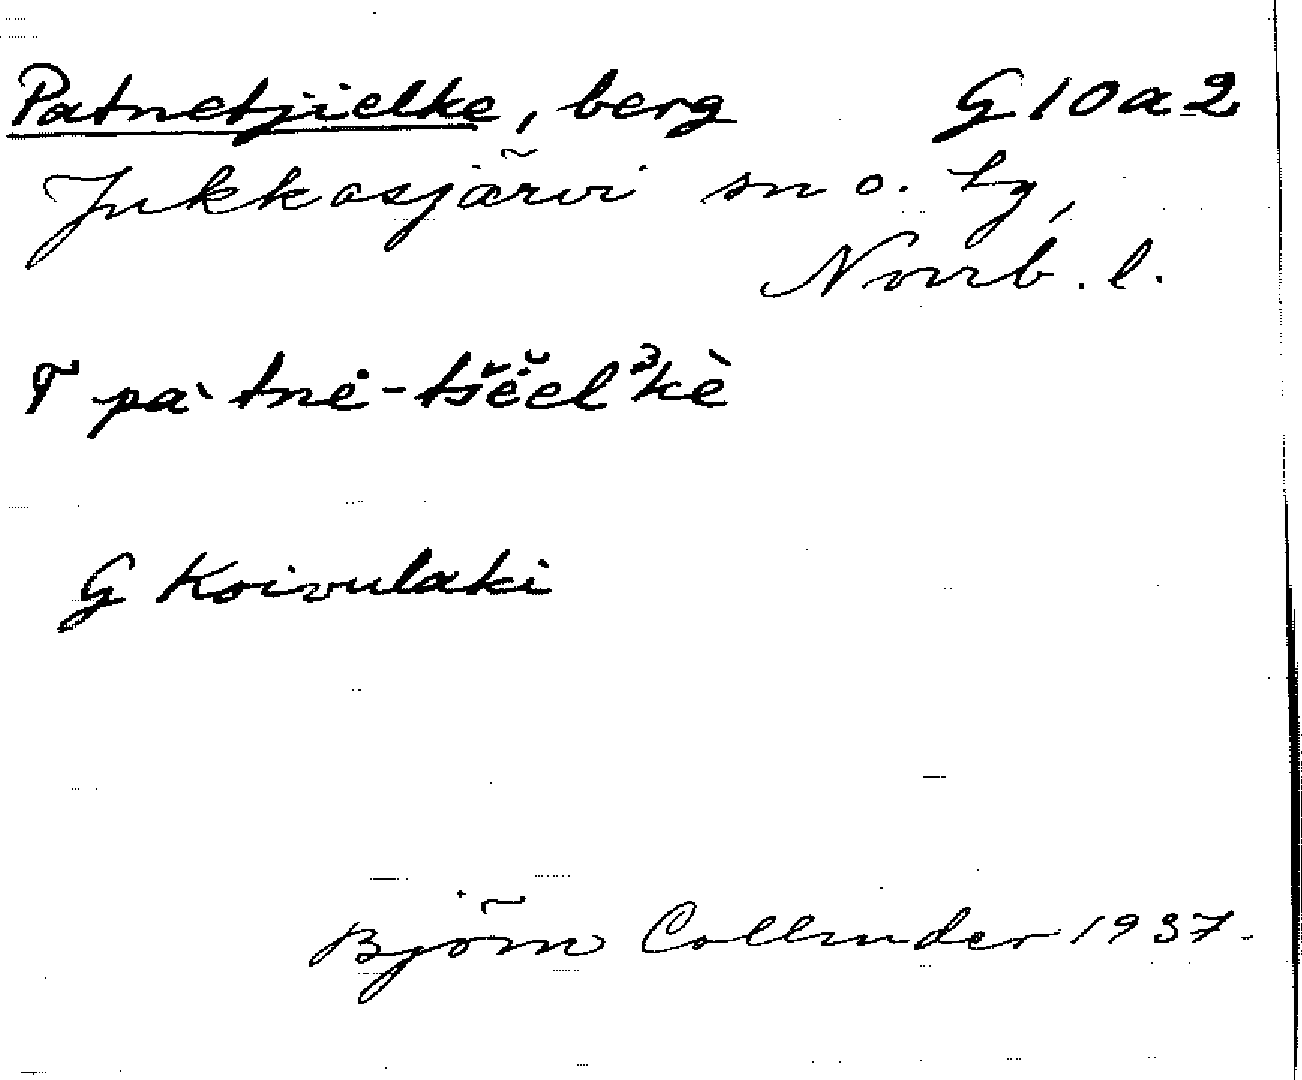 Patnetjielke, berg G 10 a 2
Jukkasjärvi sn o. lg,
Norrb. l.
pàtnė-tšĕĕl³kè
G Koivulaki
Björn Collinder 1937.